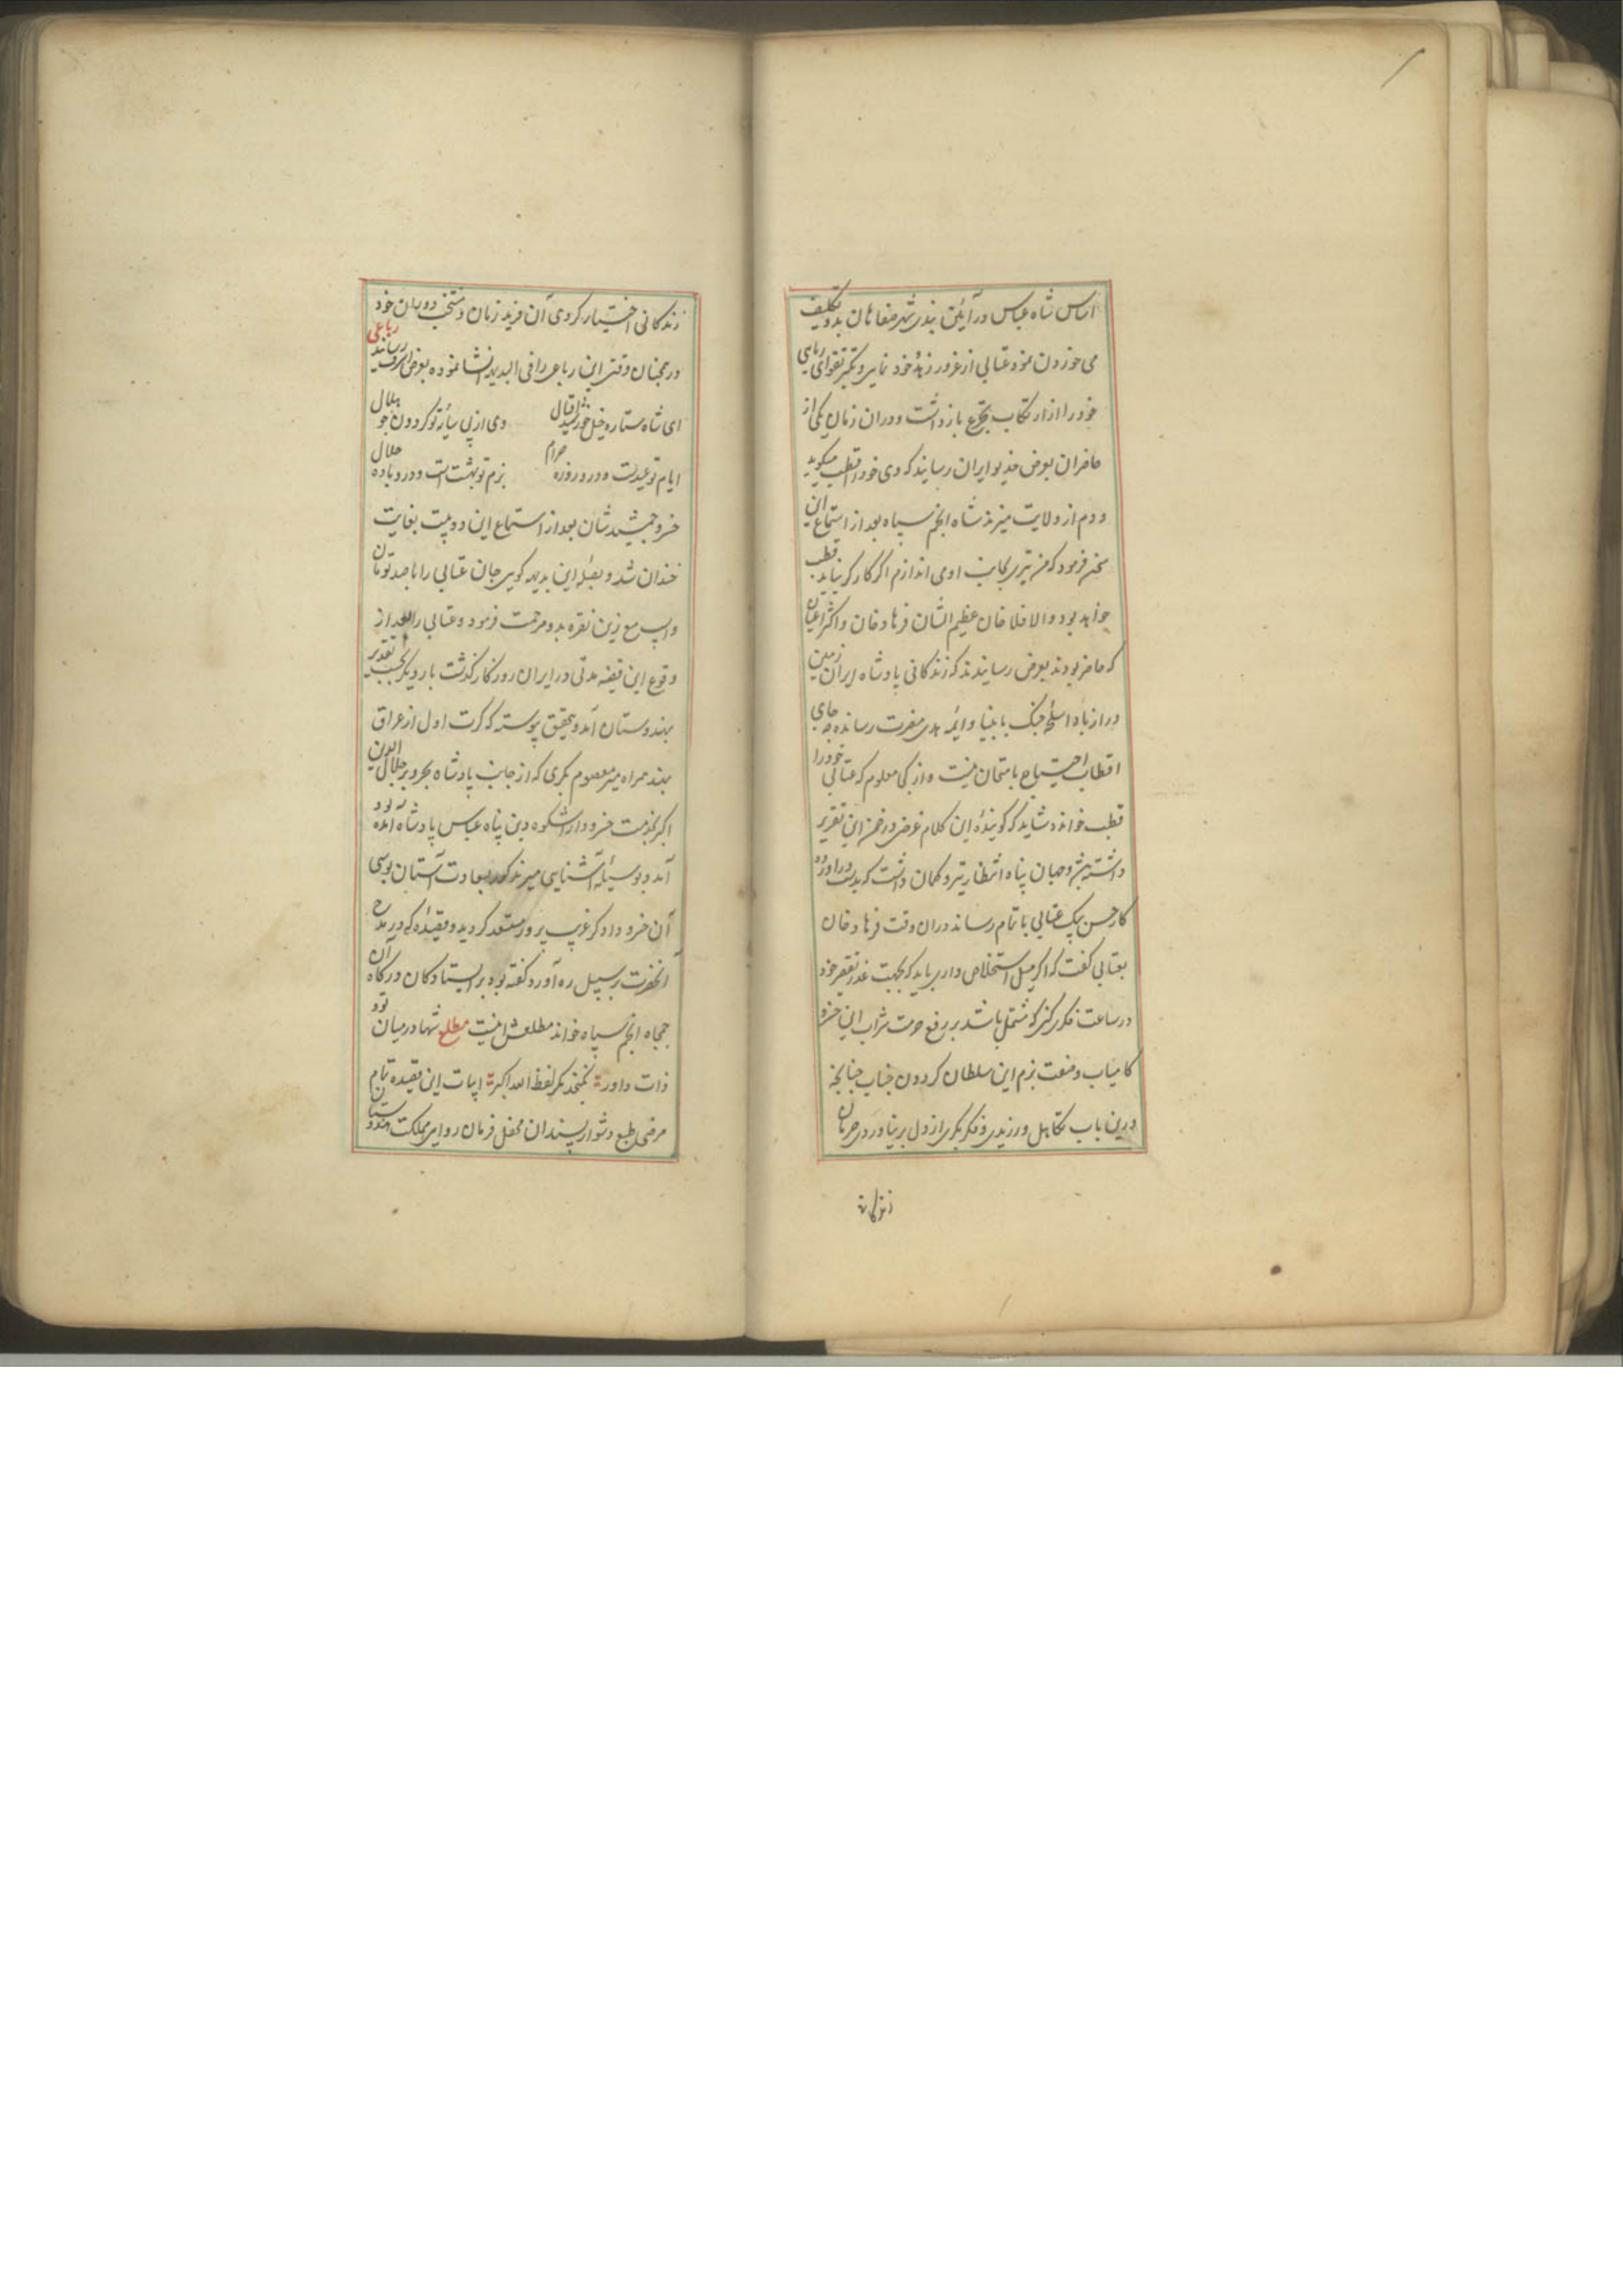 اساس شاه عباس در آیین بندی شهر صفاهان بدو تکلیف
می خوردن نمود عتابی از غرور زهد خود نمایی و تکبر تقوای ریایی
خود را از ارتکاب تجرع باز داشت و دران زمان یکی از
حاضران بعرض خدیو ایران رسانید که وی خود را قطب میگوید
و دم از ولایت میزند شاه انجم سپاه بعد از استماع این
سخن فرمود که من تیری بجانب او می اندازم اگر کارگر نیاید قطب
خواهد بود والا فلا خان عظیم الشان فرهاد خان و اکثر اعیان
که حاضر بودند بعرض رسانیدند که زندگانی پادشاه ایران زمین
دراز باد اسلحه جنگ بانبیا و ایمه هدی مضرت رسانده چه جای
اقطاب احتیاج بامتحان نیست و از کجا معلوم که عتابی خود را
قطب خوانده شاید که گوینده این کلام غرض در ضمن این تقریر
داشته خسرو جهان پناه انتظار تیر و کمان داشت که بدست در آورده
کار حسن بیک عتابی باتمام رساند دران وقت فرهاد خان
بعتابی گفت که اگر میل استخلاص داری باید که بجهت عذر تقصیر خود
در ساعت فکری کنی که مشتمل باشد بر رفع حرمت شراب این خسرو
کامیاب و صفت بزم این سلطان گردون جناب چنانچه
درین باب تکاهل ورزیدی و فکر بکری از دل بر نیاوردی حرمان
زندگانی
زندگانی اختیار کردی آن فرید زمان و منتخب دوران خود
در همان وقت این رباعی را فی البدیهه انشا نموده بعرض اشرف رسانید رباعی
ای شاه ستاره خیل خورشید اقبال وی از پی سایه تو گردون چو هلال
ایام تو عیدست و درو روزه حرام بزم تو بهشت است و درو باده حلال
خسرو جمشید شان بعد از استماع این دو بیت بغایت
خندان شد و بصله این بدیهه گویی جان عتابی را با صد تومان
و اسپ مع زین نقره بدو مرحمت فرمود و عتابی را بعد از
وقوع این قضیه مدتی در ایران روزگار گذشت بار دیگر بحسب تقدیر
بهندوستان آمد و بتحقیق پیوسته که کرت اول از عراق
بهند همراه میر معصوم بکری که از جانب پادشاه بحر و بر جلال الدین
اکبر بخدمت خسرو دارا شکوه دین پناه عباس پادشاه آمده بود
آمد و بوسیله آشنایی میر مذکور بسعادت آستان بوسی
آن خسرو دادگر غریب پرور مستعد گردید و قصیده که در مدح
آنحضرت بر سبیل ره آورد گفته بود بر ایستادگان درگاه آن
جمجاه انجم سپاه خواند مطلعش اینست مطلع شها در میان تو و
ذات داور نگنجد مگر لفظ الله اکبر ابیات این قصیده تمام
مرضی طبع دشوار پسندان محفل فرمان روای مملکت هندوستان